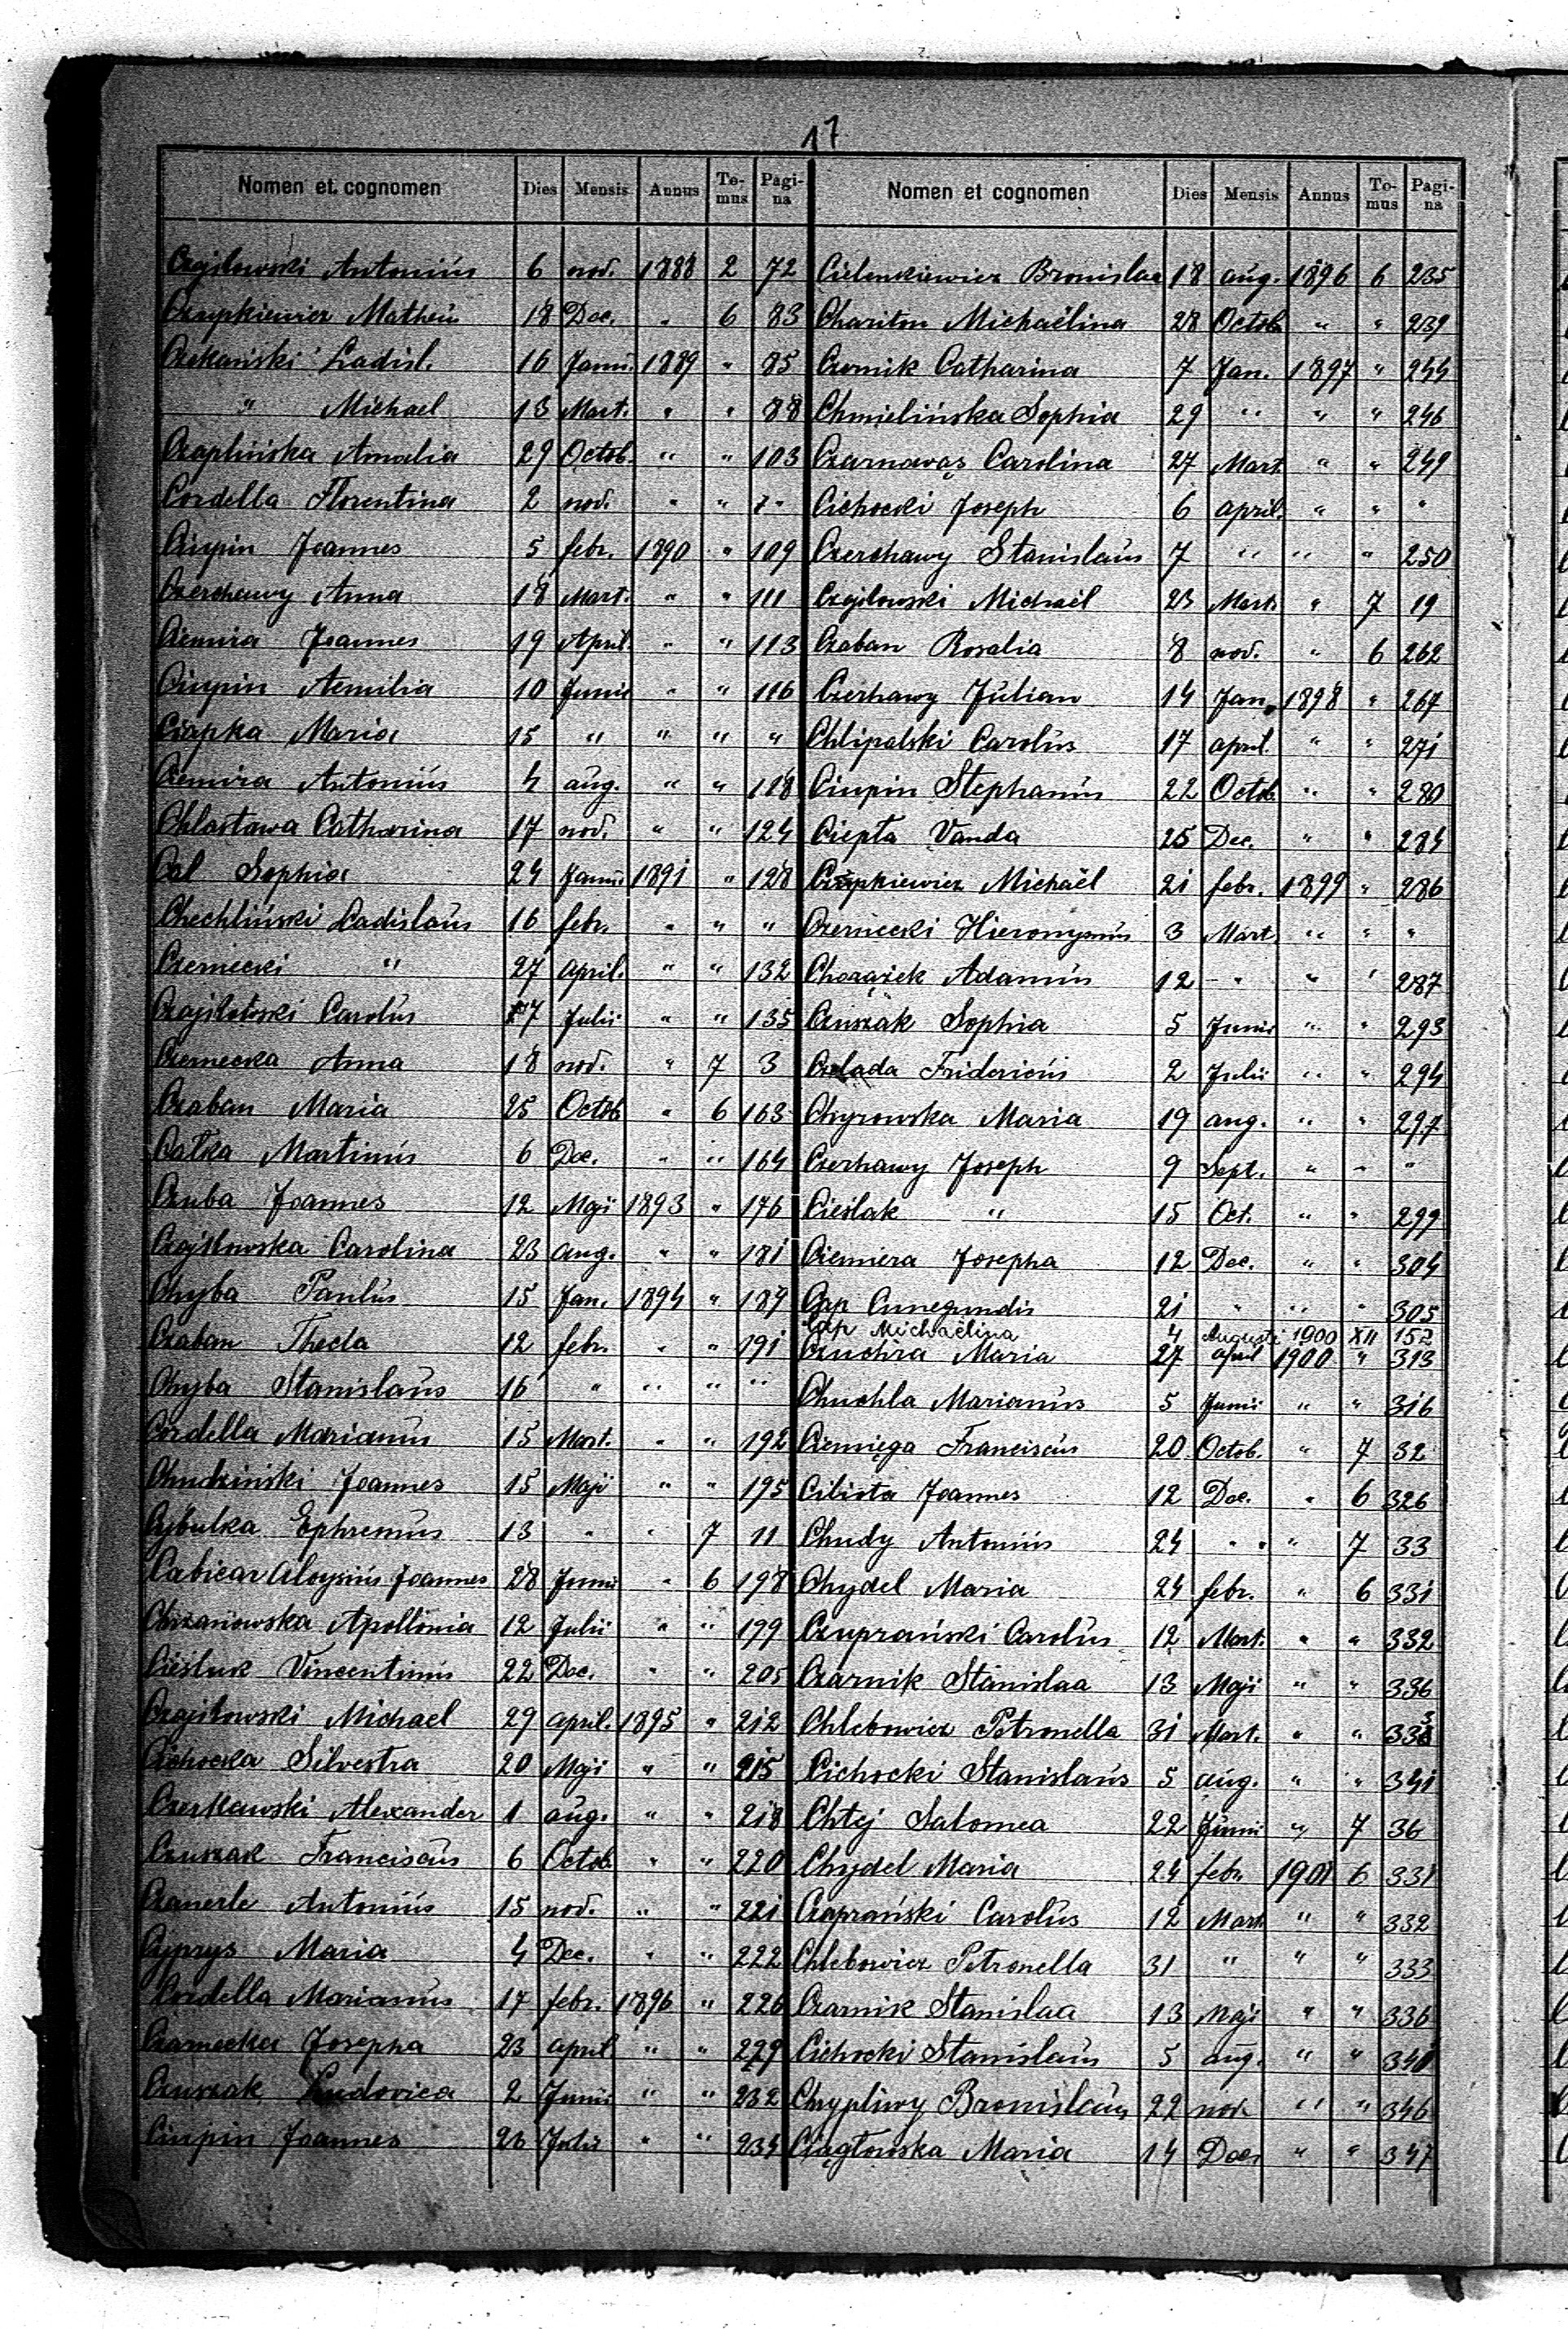 17
Nomen et cognomen Dies Mensis Annus To-mus Pagi-na Nomen et cognomen Dies Mensis Annus To-mus Pagi-na
Czajilowski Antonius 6 nov. 1888 2 72
Czupkiewicz Matheus 18 Dec. " 6 83
Czekański Ladisl. 16 Janu. 1889 " 85
" Michael 13 Mart. " " 88
Czaplińska Amalia 29 Octob. " " 103
Cordella Florentina 2 nov. " "
Ciupin Joannes 5 febr. 1890 " 109
Czerchawy Anna 18 Mart. " " 111
Ciemira Joannes 19 April. " " 113
Ciupin Aemilia 10 Junii " " 116
Ciapka Maria 15 " " " "
Ciemira Antonius 4 aug. " " 118
Chlastawa Catharina 17 nov. " " 124
Cal Sophia 24 Janu. 1891 " 128
Chechliński Ladislaus 16 febr. " " "
Czernecki " 27 april. " " 132
Czajilowski Carolus 17 Julii " " 135
Czernecka Anna 18 nov. " 7 3
Czaban Maria 25 Octob " 6 163
Całka Martinus 6 Dec. " " 164
Czuba Joannes 12 Maji 1893 " 176
Czajilowska Carolina 23 aug. " " 181
Chyba Paulus 15 Jan. 1894 " 189
Czaban Thecla 12 febr. " " 191
Chyba Stanislaus 16 " " " "
Cordella Marianus 15 Mart. " " 192
Chudziński Joannes 15 Maji " " 195
Cybulka Ephremus 13 " " 7 11
Cabicar Aloysius Joannes 28 Junii " 6 198
Chrzanowska Apollonia 12 Julii " " 199
Cieśluk Vincentius 22 Dec. " " 205
Czajilowski Michael 29 april. 1895 " 212
Cichocka Silvestra 20 Maji " " 215
Czerkawski Alexander 1 aug. " " 218
Czuszak Franciscus 6 Octob. " " 220
Czanerle Antonius 15 nov. " " 221
Cyprys Maria 4 Dec. " " 222
Cordella Marianus 17 febr. 1896 " 226
Czarnecka Josepha 23 april " " 229
Czuszak Ludovica 2 Junii " " 232
Ciupin Joannes 26 Julii " " 234
Cielenkiewicz Bronislaa 18 aug. 1896 6 235
Chariton Michaëlina 28 Octob " " 239
Czernik Catharina 7 Jan. 1897 " 244
Chmielińska Sophia 29 " " " 246
Czarnawąs Carolina 27 Mart. " " 249
Cichocki Joseph 6 april. " " "
Czerchawy Stanislaus 7 " " " 250
Czajilowski Michaël 23 Mart. " 7 19
Czaban Rosalia 8 nov. " 6 262
Czerhawy Julian 14 Jan. 1898 " 267
Chlipalski Carolus 17 april. " " 271
Ciupin Stephanus 22 Octob. " " 280
Ciepła Vanda 25 Dec. " " 284
Czupkiewicz Michaël 21 febr. 1899 " 286
Czernecki Hieronymus 3 Mart. " " "
Chorążek Adamus 12 " " " 287
Czuszak Sophia 5 Junii " " 293
Czelada Fridericus 2 Julii " " 294
Chyrowska Maria 19 aug. " " 297
Czerhawy Joseph 9 Sept. " " "
Cieślak " 15 Oct. " " 299
Ciemiera Josepha 12 Dec. " " 304
Cap Cunegundis 21 " " " 305
Cap Michaëlina 4 Augusti 1900 XII 152
Czuchra Maria 27 april 1900 " 313
Chuchla Marianus 5 Junii " " 316
Ciemięga Franciscus 20 Octob. " 7 32
Cibista Joannes 12 Dec. " 6 326
Chudy Antonius 24 " " 7 33
Chydel Maria 24 febr. " 6 331
Czuprański Carolus 12 Mart. " " 332
Czarnik Stanislaa 13 Maji " " 336
Chlebowicz Petronella 31 Mart. " " 333
Cichocki Stanislaus 5 aug. " " 341
Chtej Salomea 22 Junii " 7 36
Chydel Maria 24 febr. 1901 6 331
Czaprański Carolus 12 Mart. " " 332
Chlebowicz Petronella 31 " " " 333
Czarnik Stanislaa 13 Maji " " 336
Cichocki Stanislaus 5 aug. " " 341
Chrypliwy Bronislaus 22 nov. " " 346
Ciągłowska Maria 14 Dec. " " 347